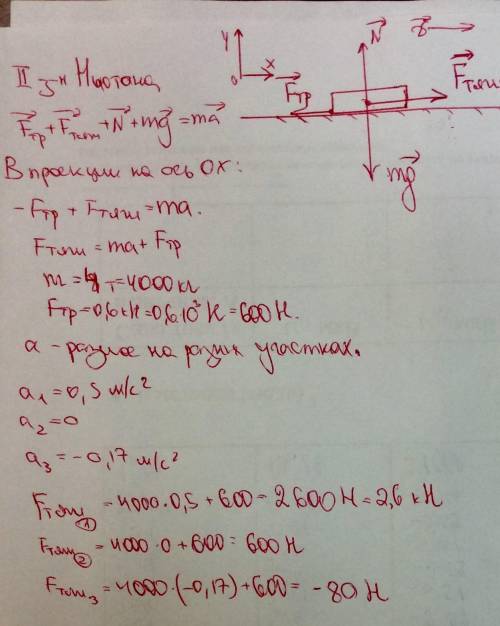 II з-н Ньютона
F⃗тр + F⃗тяги + N⃗ + mg⃗ = ma⃗
В проекции на ось OX:
- Fтр + Fтяги = ma.
Fтяги = ma + Fтр
m = 4т = 4000 кг
Fтр = 0,6 кН = 0,6·10³ Н = 600 Н.
a - разное на разных участках.
a₁ = 0,5 м/с²
a₂ = 0
a₃ = -0,17 м/с²
Fтяги① = 4000·0,5 + 600 = 2600 Н = 2,6 кН
Fтяги② = 4000·0 + 600 = 600 Н
Fтяги₃ = 4000·(-0,17) + 600 = -80 Н
y
0
x
N⃗
F⃗тр
F⃗тяги
mg⃗